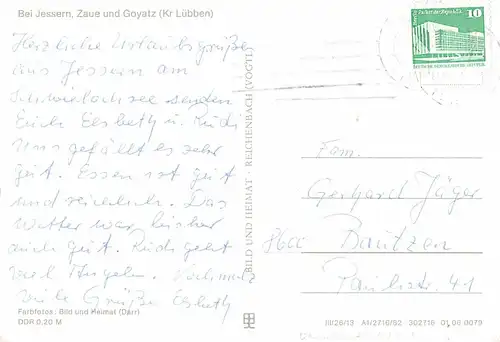 Bei Jessern, Zaue und Goyatz (Kr Lübben)
Herzliche Urlaubsgrüße
aus Jessern am
Schwielochsee senden
Euch Elsbeth u. Rudi
Uns gefällt es sehr
gut. Essen ist gut
und reichlich. Das
Wetter war bisher
auch gut. Rudi geht
viel Angeln. Nochmals
viele Grüße Elsbeth
Farbfotos: Bild und Heimat (Darr)
DDR 0,20 M
BILD UND HEIMAT · REICHENBACH (VOGTL)
10
Fam.
Gerhard Jäger
8600 Bautzen
Paulistr. 41
III/26/13 A1/2716/82 302716 01 06 0079